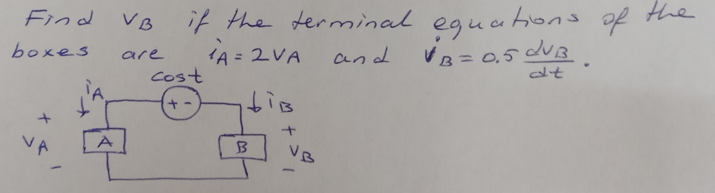 Find VB if the terminal equations of the
boxes are iA = 2VA and iB = 0.5 dVB/dt .
cost
iA + - iB
+ +
VA A B VB
- -